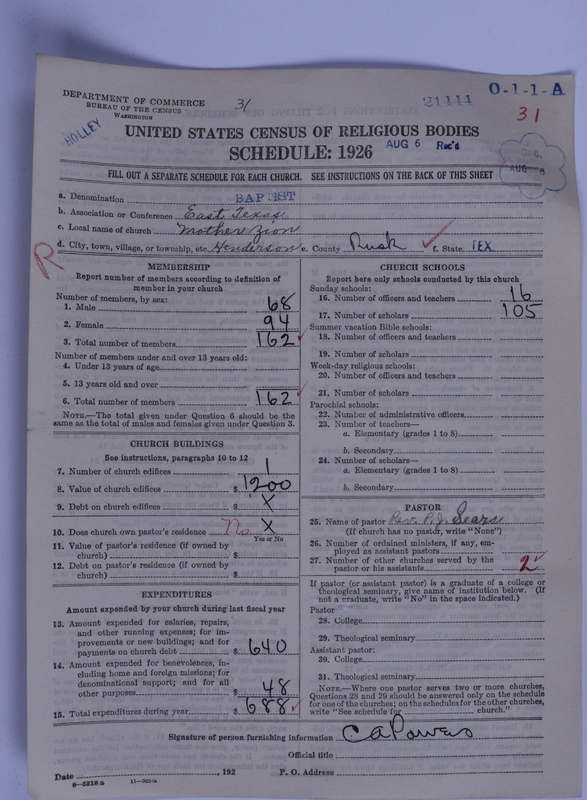 DEPARTMENT OF COMMERCE
BUREAU OF THE CENSUS
WASHINGTON
31
21444
O-1-1-A
31
HOLLEY
UNITED STATES CENSUS OF RELIGIOUS BODIES
SCHEDULE: 1926
AUG 6 Rec'd
AUG 6
FILL OUT A SEPARATE SCHEDULE FOR EACH CHURCH. SEE INSTRUCTIONS ON THE BACK OF THIS SHEET
a. Denomination BAPTIST
b. Association or Conference East Texas
c. Local name of church Mother Zion
d. City, town, village, or township, etc. Henderson e. County Rusk f. State TEX
R
MEMBERSHIP
Report number of members according to definition of
member in your church
Number of members, by sex:
1. Male 68
2. Female 94
3. Total number of members 162
Number of members under and over 13 years old:
4. Under 13 years of age
5. 13 years old and over
6. Total number of members 162
NOTE.—The total given under Question 6 should be the
same as the total of males and females given under Question 3.
CHURCH BUILDINGS
See instructions, paragraphs 10 to 12
7. Number of church edifices 1
8. Value of church edifices $ 1200
9. Debt on church edifices $ X
10. Does church own pastor's residence No X
Yes or No
11. Value of pastor's residence (if owned by
church) $
12. Debt on pastor's residence (if owned by
church) $
EXPENDITURES
Amount expended by your church during last fiscal year
13. Amount expended for salaries, repairs,
and other running expenses; for im-
provements or new buildings; and for
payments on church debt $ 640
14. Amount expended for benevolences, in-
cluding home and foreign missions; for
denominational support; and for all
other purposes $ 48
15. Total expenditures during year $ 688
CHURCH SCHOOLS
Report here only schools conducted by this church
Sunday schools:
16. Number of officers and teachers 16
17. Number of scholars 105
Summer vacation Bible schools:
18. Number of officers and teachers
19. Number of scholars
Week-day religious schools:
20. Number of officers and teachers
21. Number of scholars
Parochial schools:
22. Number of administrative officers
23. Number of teachers—
a. Elementary (grades 1 to 8)
b. Secondary
24. Number of scholars—
a. Elementary (grades 1 to 8)
b. Secondary
PASTOR
25. Name of pastor Rev. P. J. Sears
(If church has no pastor, write "None")
26. Number of ordained ministers, if any, em-
ployed as assistant pastors
27. Number of other churches served by the
pastor or his assistants 2
If pastor (or assistant pastor) is a graduate of a college or
theological seminary, give name of institution below. (If
not a graduate, write "No" in the space indicated.)
Pastor
28. College
29. Theological seminary
Assistant pastor:
30. College
31. Theological seminary
NOTE.—Where one pastor serves two or more churches,
Questions 28 and 29 should be answered only on the schedule
for one of the churches; on the schedules for the other churches,
write "See schedule for church."
Signature of person furnishing information C A Powers
Official title
Date , 192 P. O. Address
8-5518a